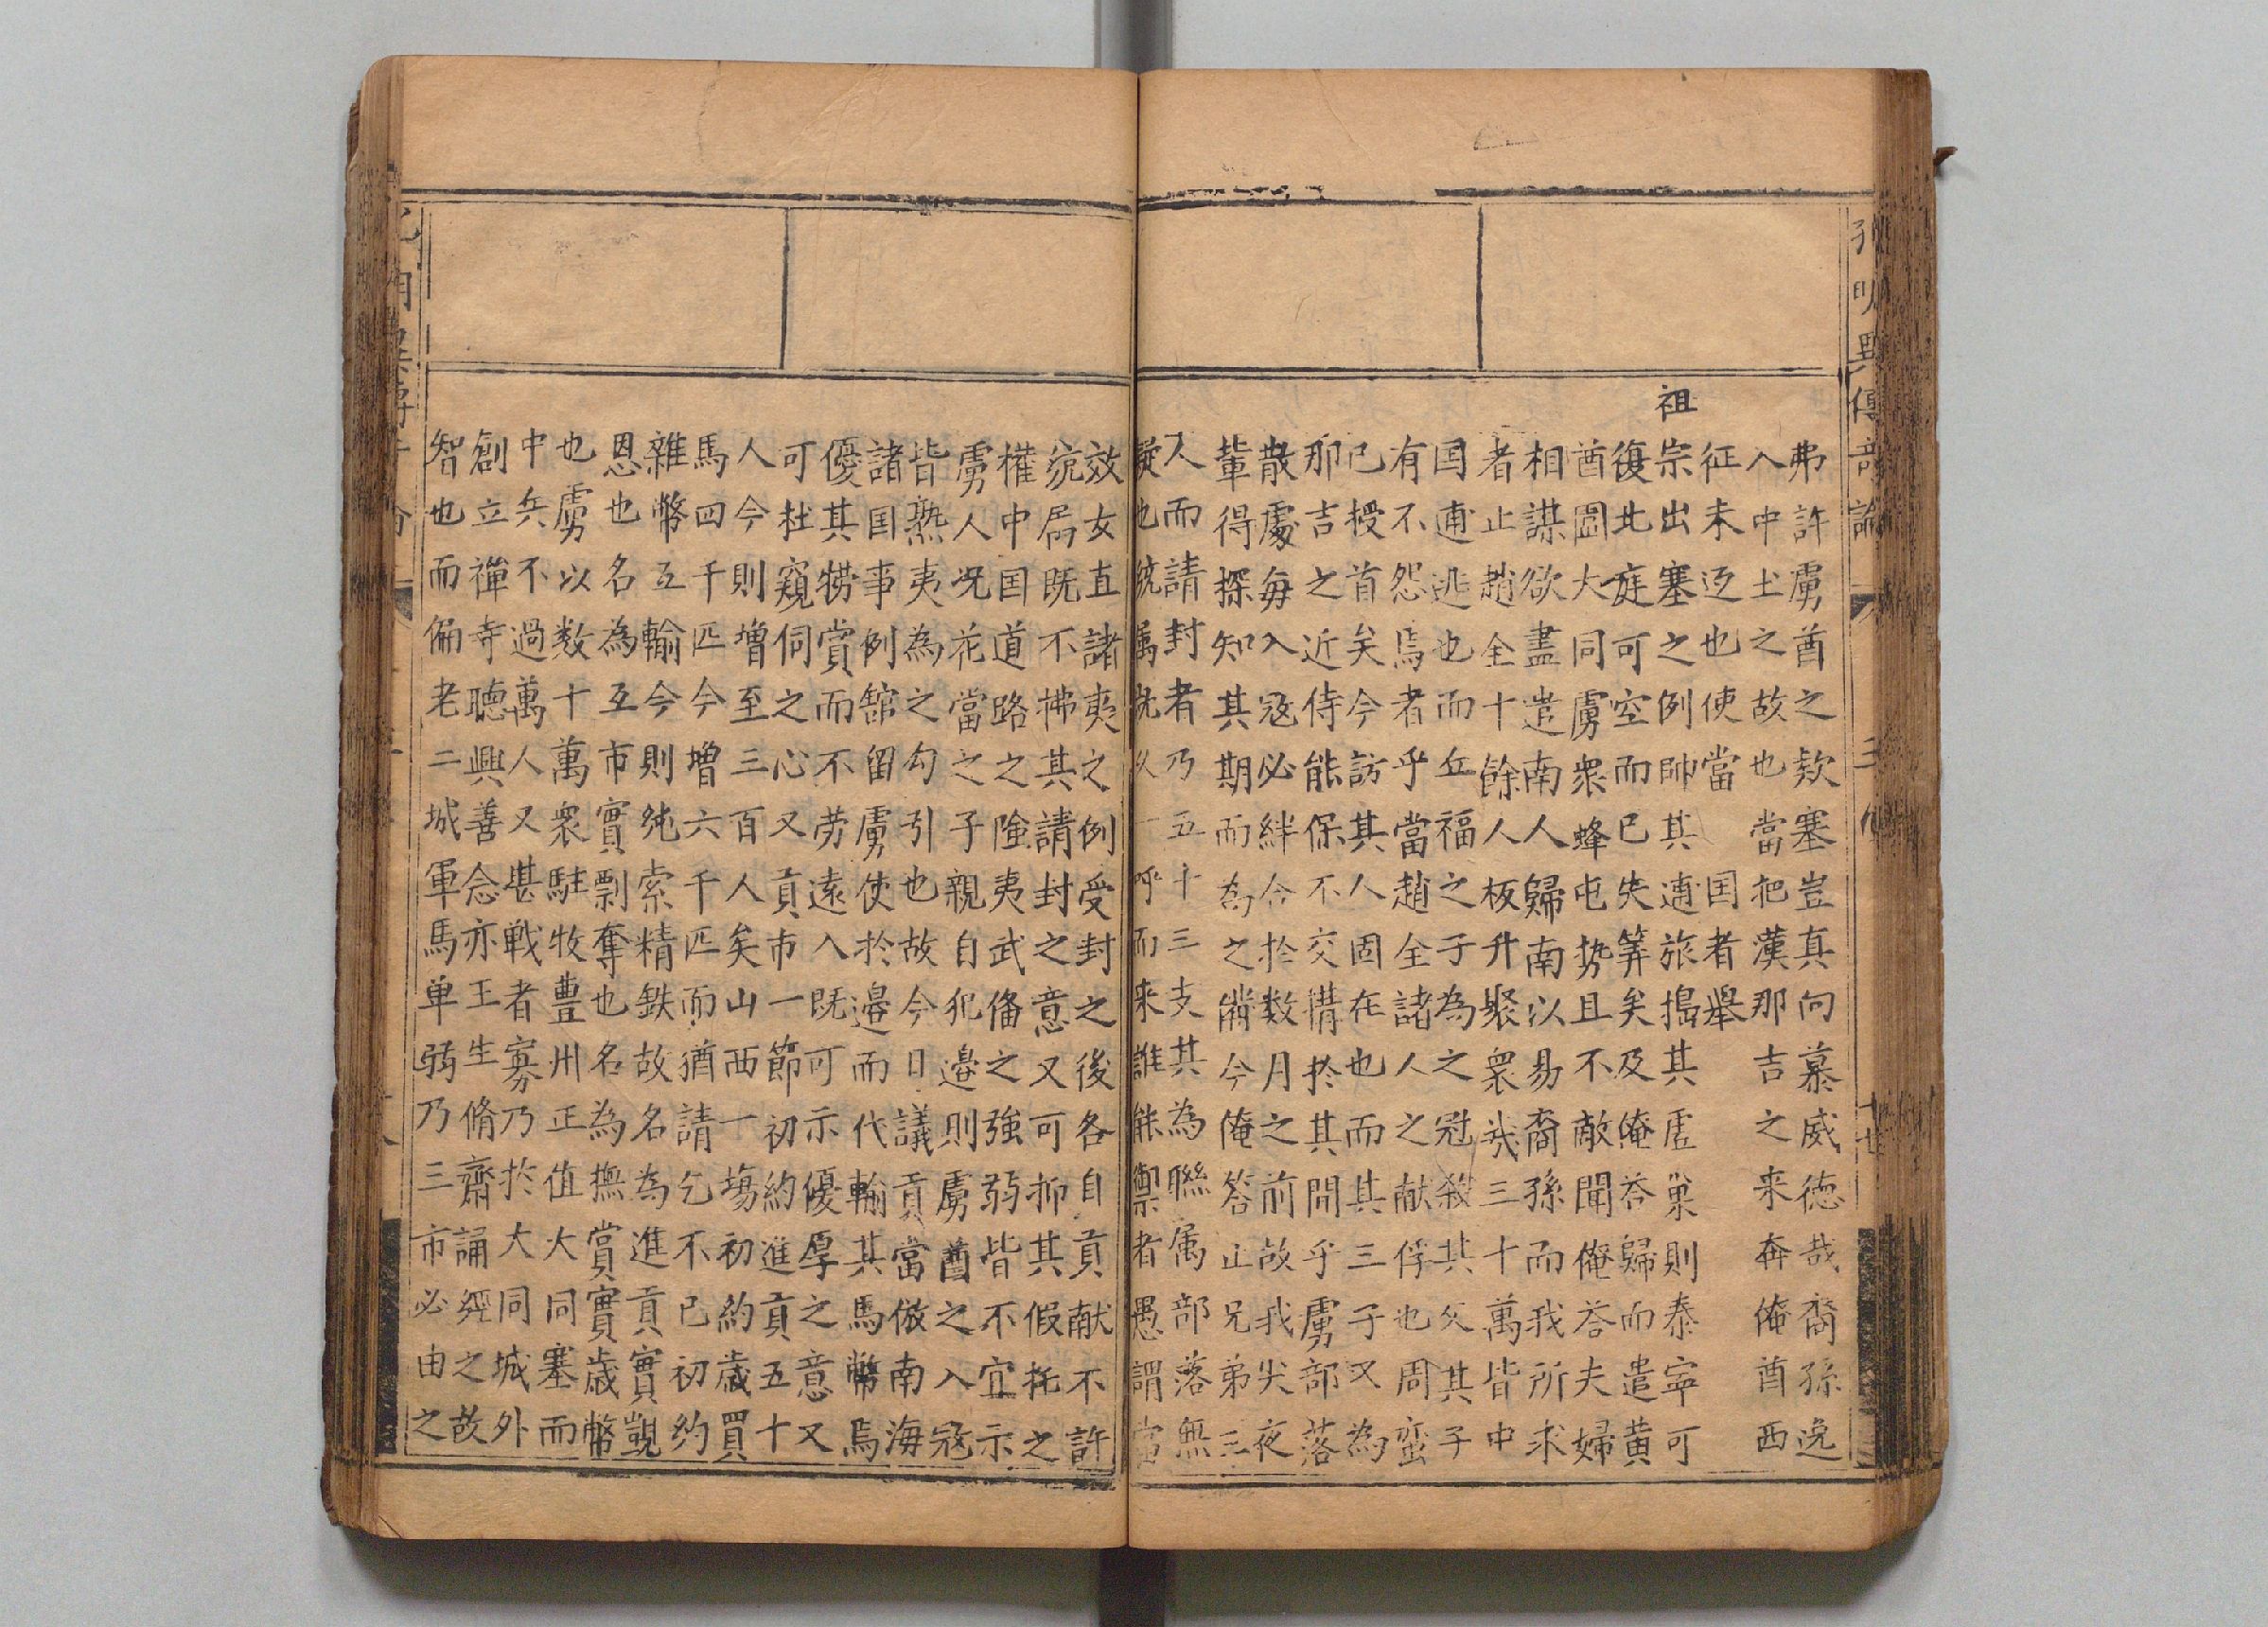 弗許虜酋之欵塞豈真向慕威徳哉裔孫逸
入中土之故也當把漢那吉之来奔俺酋西
征未迈也使當国者舉
祖
宗出塞之例帥其逋旅搗其虗巢則泰寧可
復北庭可空而已失筭矣及俺荅歸而遣黄
酋圖大同虜衆蜂屯势且不敵聞俺荅夫婦
相謀欲盡遣南人歸南以易裔孫而我所求
者止趙全十餘人板升聚衆㡬三十萬皆中
国逋逃也而丘福之子為之冠殺其父其子
有不怨焉者乎當趙全諸人之献俘也周蛮
已授首矣今訪其人固在也而其三子又為
那吉之近侍能保不交搆扵其間乎虜部落
散處毎入冦必絆合扵数月之前故我尖夜
輩得探知其期而為之俻今俺答正兄弟三
人而請封者乃五十三支其為聯属部落無
疑也統属既久一呼而来誰能禦者愚謂當
效女直諸夷之例受封之後各自貢献不許
統屬既不拂其請封之意又可抑其假托之
權中国道路之險夷武俻之強弱皆不宜示
虜人况花當之子親自犯邉則虜酋之入冦
皆熟夷為之勾引也故今日議貢當倣南海
諸国事例舘留虜使於邉而代輸其馬幣焉
優其犒賞而不劳逺入既可示優厚之意又
可杜窺伺之心又貢市一節初約進貢五十
人今則增至三百人矣山西一塲初約歳買
馬四千匹今增六千匹而猶請乞不已初約
雜幣互輸今則純索精鉄故名為進貢實覬
恩也名為互市實剽奪也名為撫賞實歳幣
也虜以数十萬衆駐牧豊州正值大同塞而
中兵不過萬人又堪戦者寡乃於大同城外
創立禅寺聴興善念亦王生脩齋誦經之故
智也而偏老二城軍馬单弱乃三市必由之